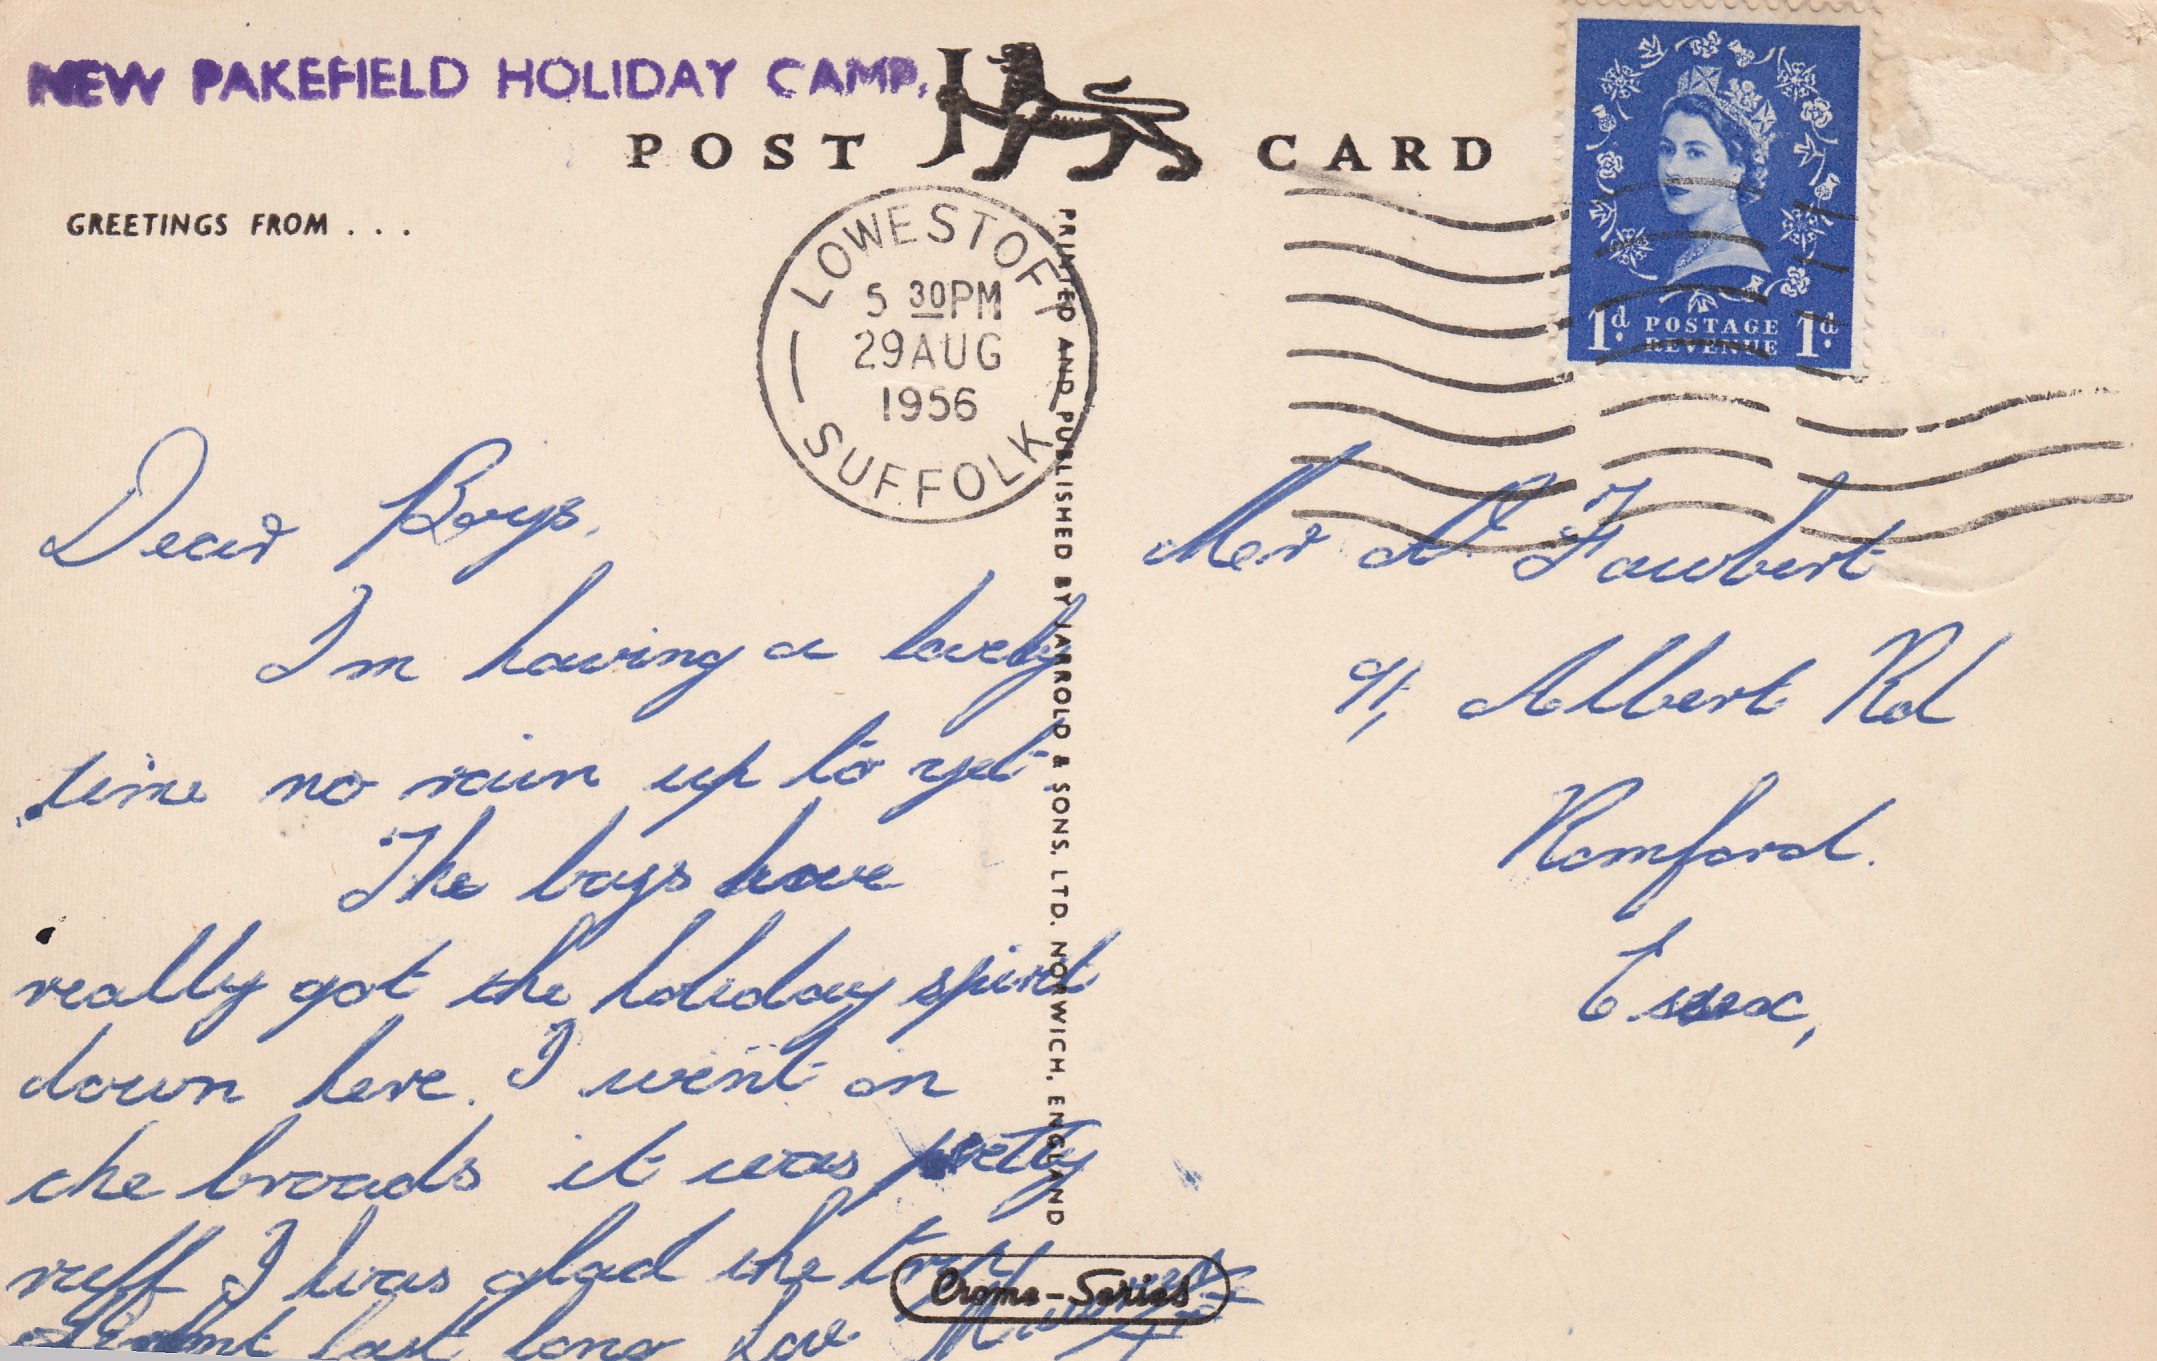 NEW PAKEFIELD HOLIDAY CAMP.
POST CARD
GREETINGS FROM . . .
LOWESTOFT
5 30PM
29 AUG
1956
SUFFOLK
1d. POSTAGE 1d.
REVENUE
Dear Boys,
I'm having a lovely
time no rain up to yet
The boys have
really got the holiday spirit
down here. I went on
the broads it was pretty
ruff I was glad the trip
didnt last long
PRINTED AND PUBLISHED BY JARROLD & SONS, LTD. NORWICH, ENGLAND
Crome-Series
Mr Faubert
91, Albert Rd
Romford.
Essex,